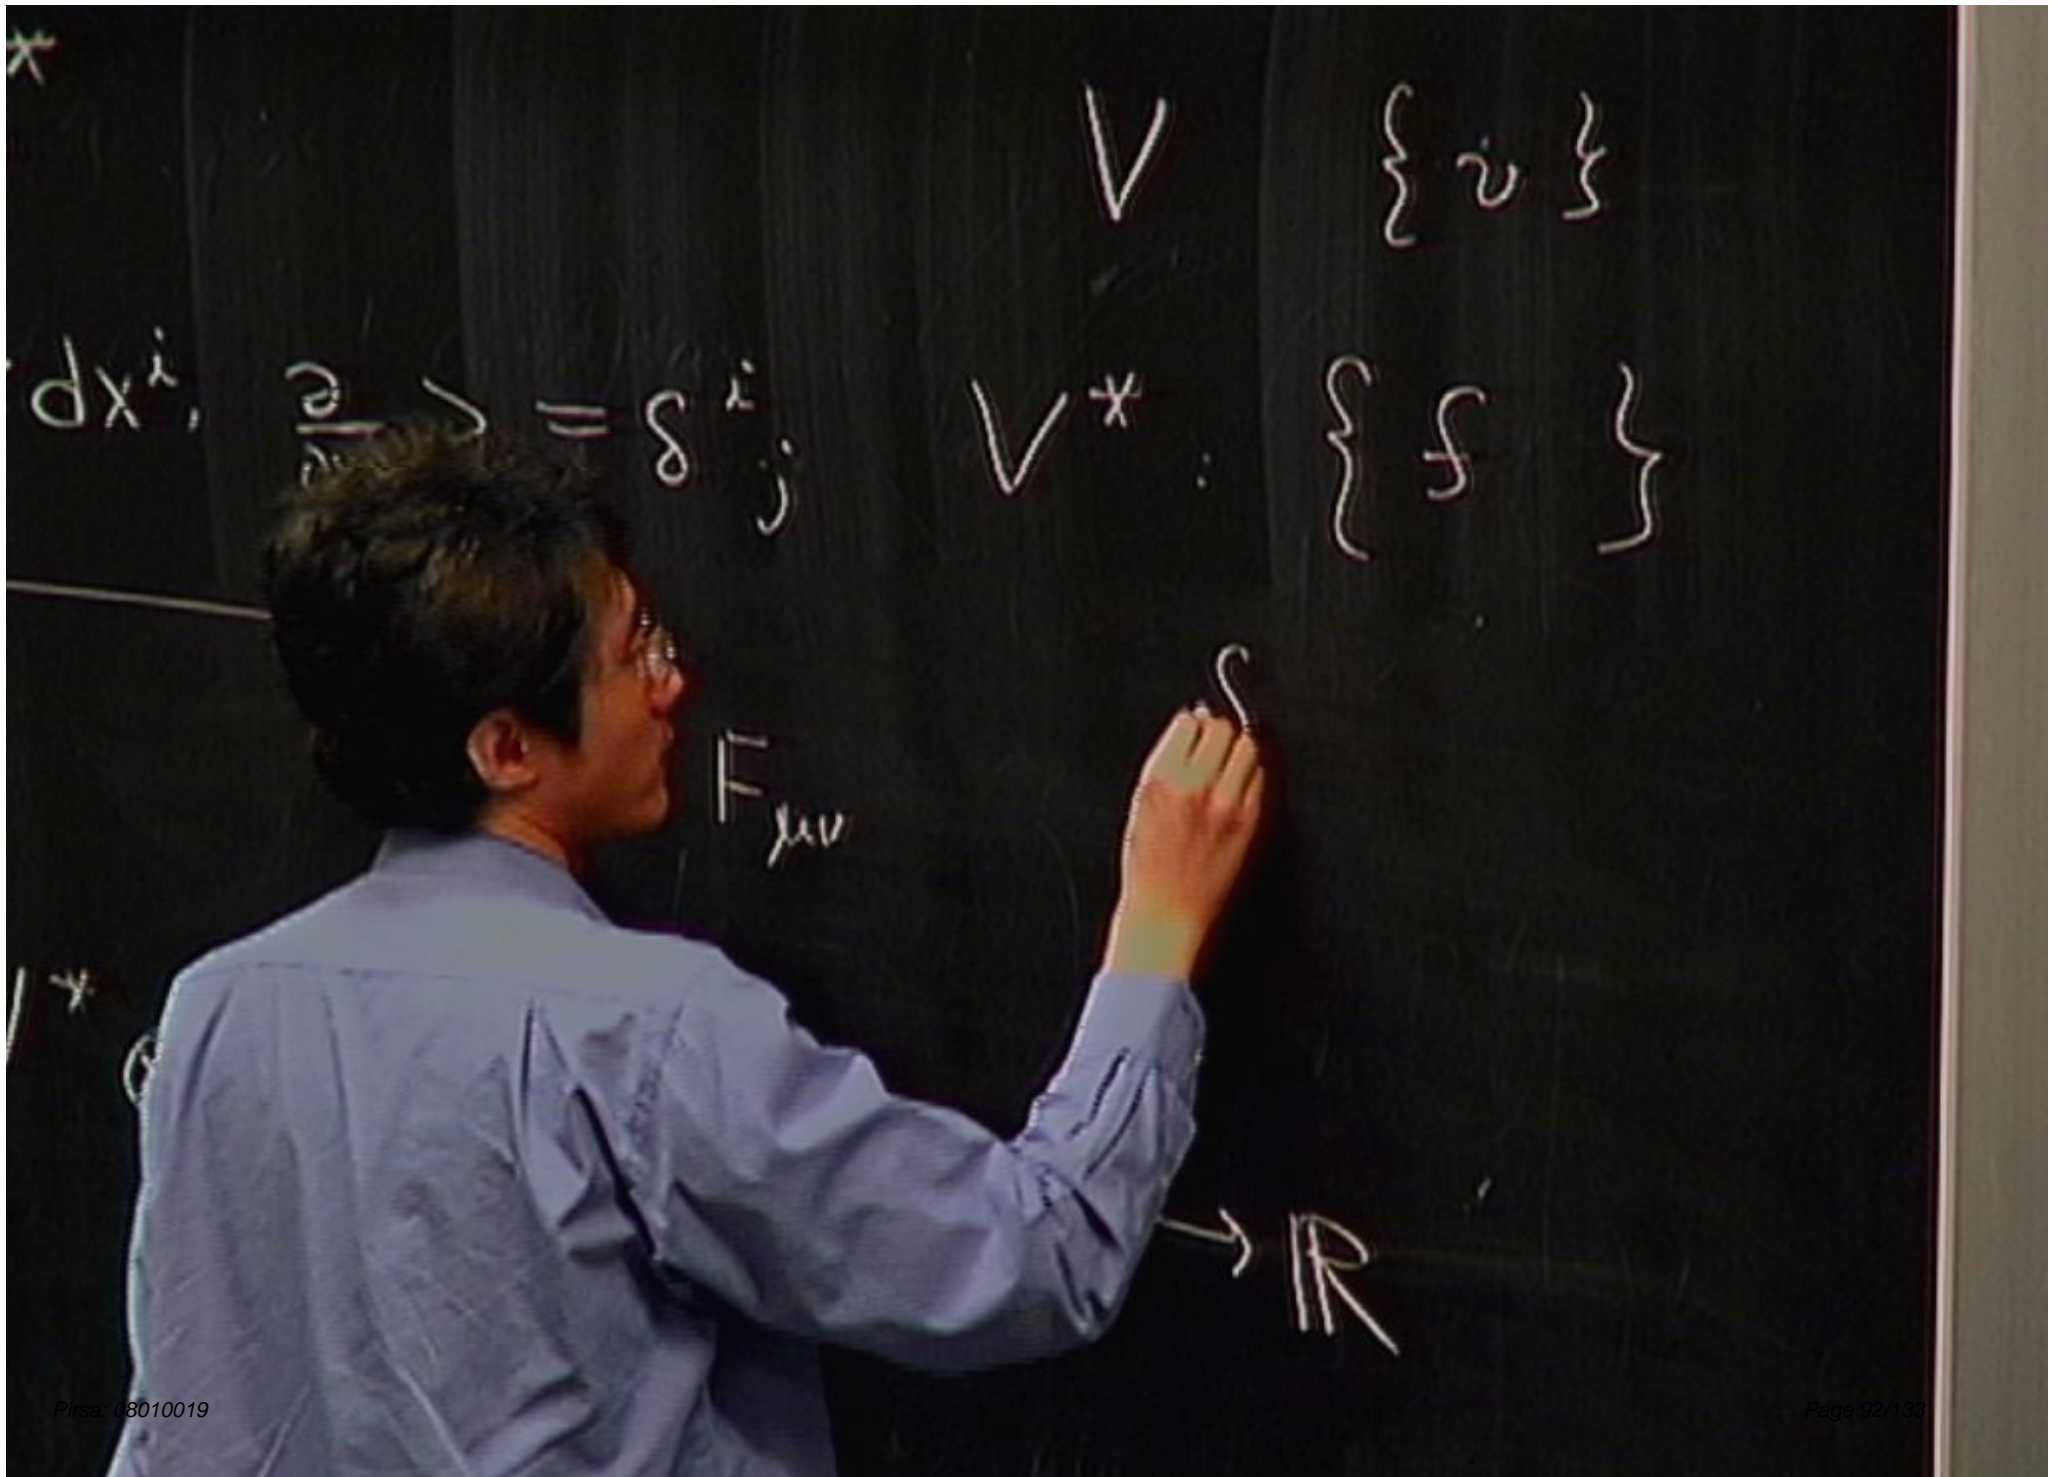 *
V { v }
dxⁱ, ∂/∂ > = δⁱⱼ V* : { f }
F_μν
V* ⊗
→ ℝ
Pirsa: 08010019
Page 92/133